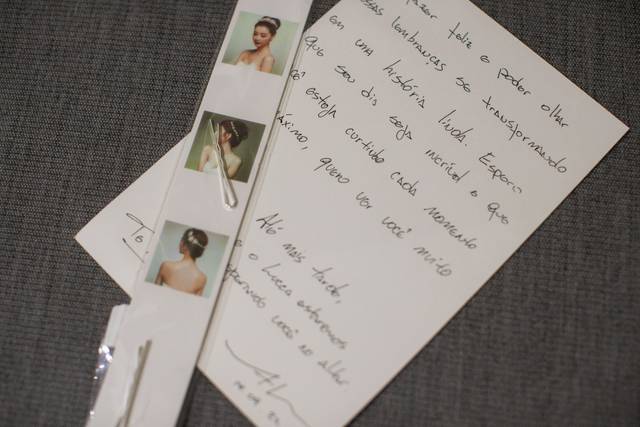 feliz e poder olhar
essas lembranças se transformando
em uma história linda. Espero
que seu dia seja incrível e que
cê esteja curtindo cada momento
máximo, quero ver você muito
Até mais tarde,
e o Lucca estaremos
esperando você no altar
Te